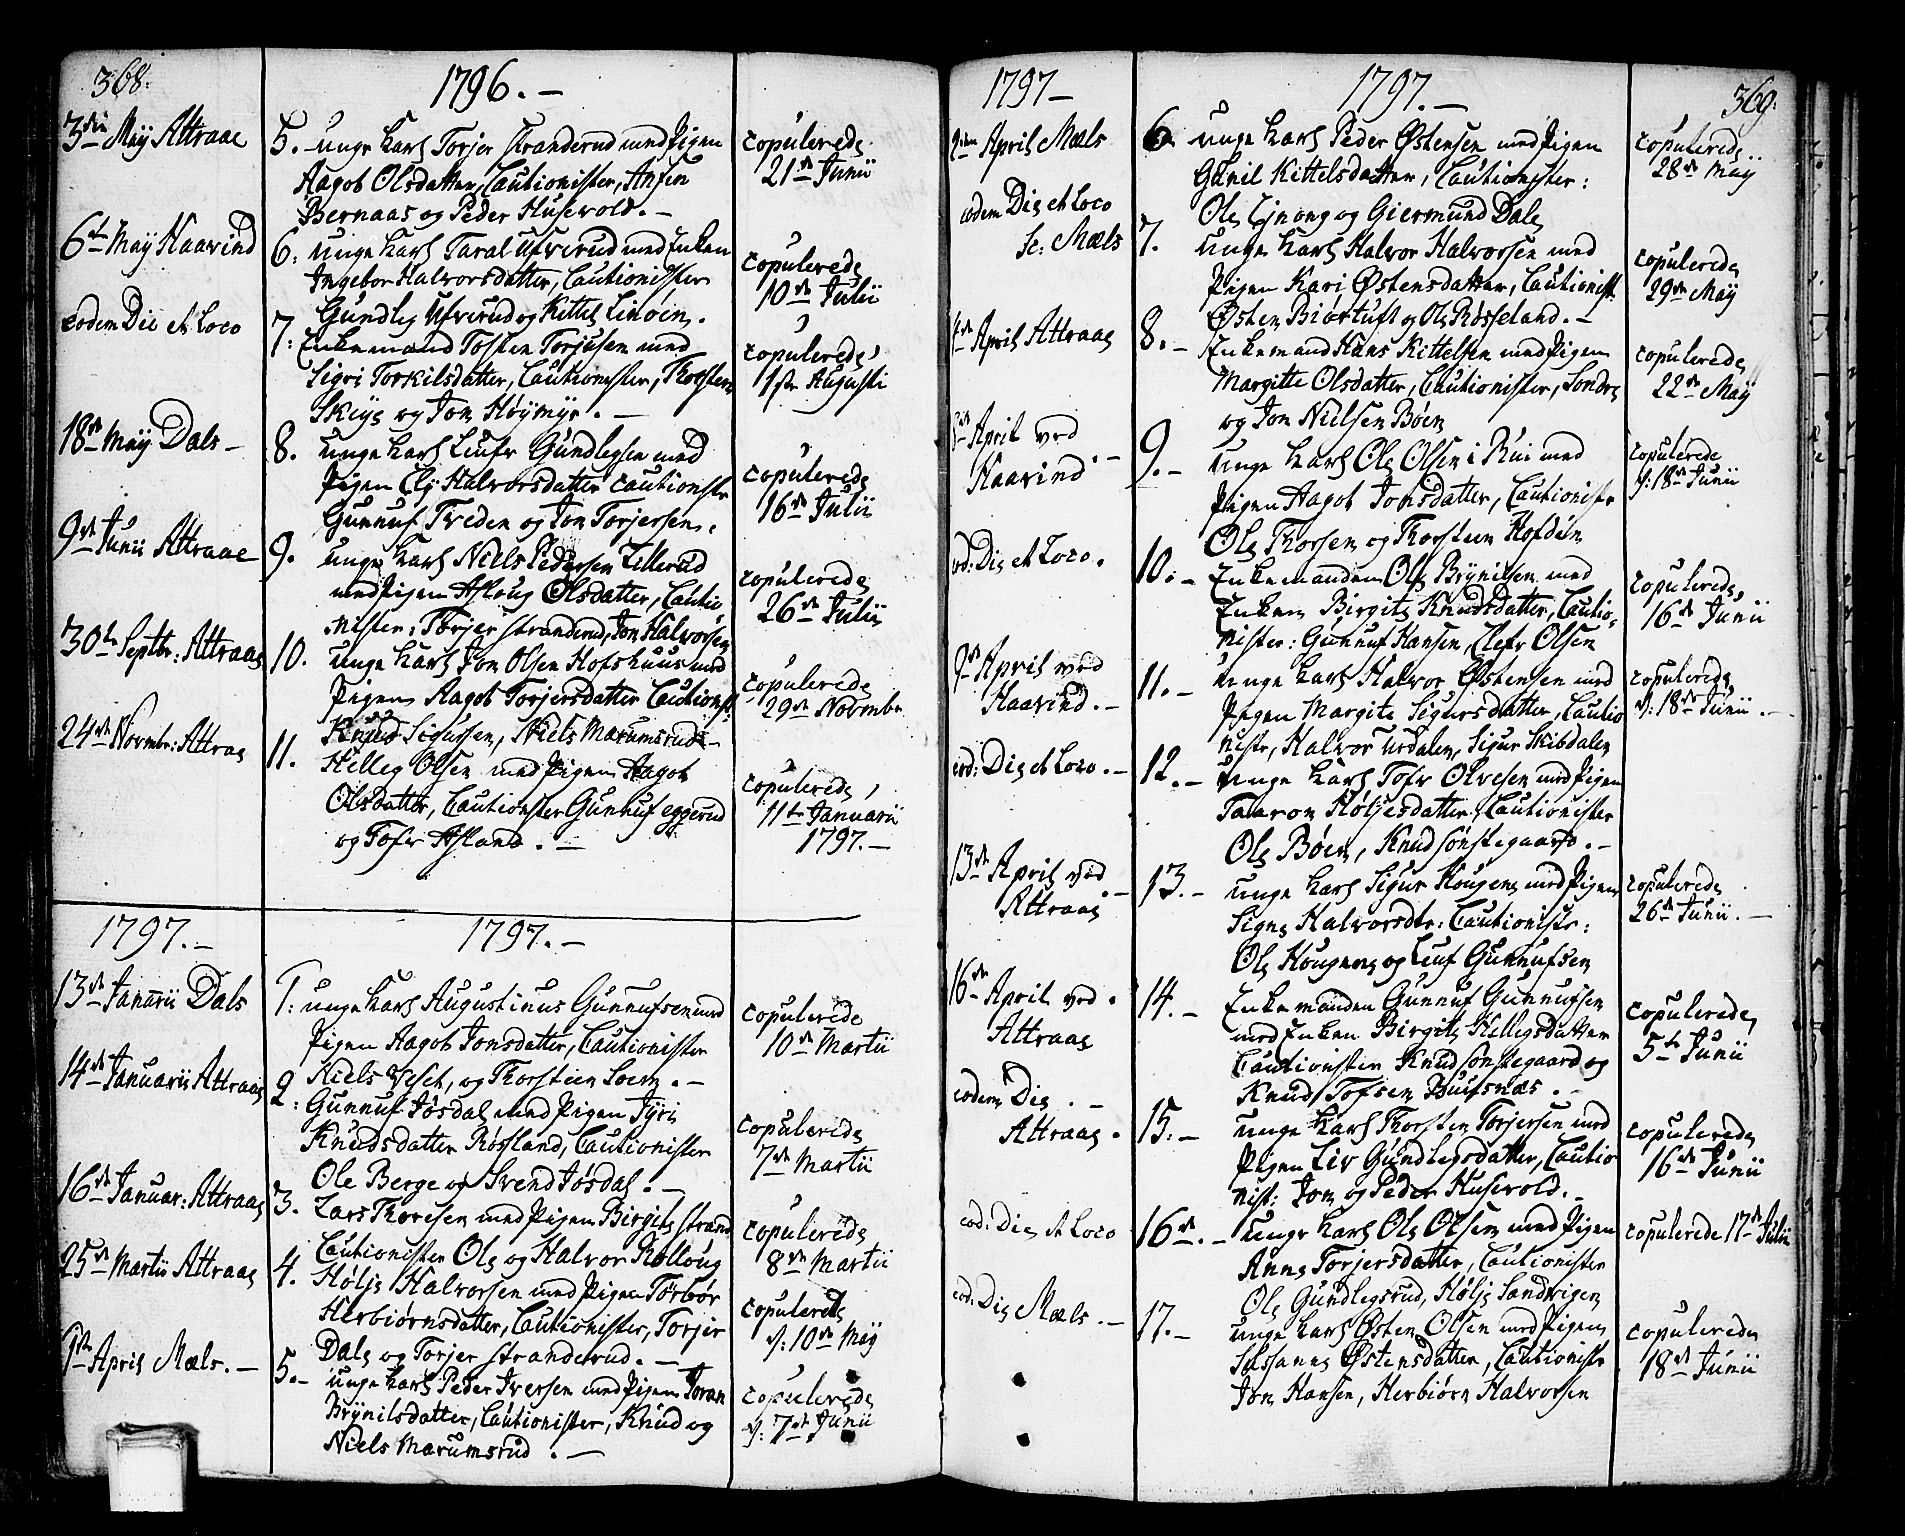 368.
1796. —
3die Maÿ Attraae
5. unge Karl Torjer Stranderud med Pigen
Aagot Olsdatter, Cautionister, Anfin
Bernaas og Peder Husevold. —
copulerede
21de Junii
6te Maÿ Haavind
6: unge Karl Taral Ufverud med Enken
Ingebor Halvorsdatter, Cautionister
Gundleg Ufverud og Kittel Linøen.
copulerede
10de Julii
eodem Die et Loco
7: Enkemand Tosten Torjusen med
Sigri Torkilsdatter, Cautionister, Thorsten
Skeije og Jon Høymyr. —
copulerede
1ste Augusti
18de Maÿ Dale —
8. unge Karl Leufr Gundlegsen med
Pigen Elj Halvorsdatter Cautionistr
Gunnuf Tveden og Jon Torjersen.
copulerede
16de Julii
9de Junii Attraae
9. unge Karl Niels Pedersen Lillerud
med Pigen Aslaug Olsdatter, Cautio
nister: Torjer Stranderud, Jon Halvorsen
copulerede
26de Julii
30te Septbr: Attraae
10. unge Karl Jon Olsen Hofshuus med
Pigen Aagot Torjersdatter Cautionist:
Knud Sigussen, Niels Marumsrud —
copulerede
29de Novembr
24de Novembr: Attraae
11. Helleg Olsen med Pigen Aagot
Olsdatter, Cautionister Gunnuf eggerud
og Tofr Asland. —
copulerede
11te Januarii
1797. —
1797. —
1797. —
13de Januarii Dale
1: unge Karl Augustinus Gunnufsen med
Pigen Aagot Jonsdatter, Cautionister
Niels Veset, og Thorsteen Loen. —
copulerede
10de Martii
14de Januarii Attraae
2: Gunnuf Jøsdal med Pigen Jyri
Knudsdatter Røisland, Cautionister
Ole Berge og Svend Jøsdal. —
copulerede
7de Martii
16de Januar: Attraae
3. Lars Thoresen med Pigen Birgite Strand
Cautionister Ole og Halvor Rolloug
copulerede
8de Martii
25de Martii Attraae
4. Hølje Halvorsen med Pigen Torbør
Herbiørnsdatter, Cautionister, Torjer
Dale og Torjer Stranderud. —
copulerede
d: 10de Maÿ
1ste April Mæls. —
5. — unge Karl Peder Iversen med Pigen Joran
Brÿnilsdatter, Cautionister, Knud og
Niels Marumsrud. —
copulerede
d: 7de Junii
1797 —
1797. —
369.
April Mæls
6. unge Karl Peder Østensen med Pigen
Gunil Kittelsdatter, Cautionister:
Ole Ejnong og Giermund Dale
copulerede
28de Maÿ
eodem Die et Loco
sc: Mæls
7. unge Karl Halvor Halvorsen med
Pigen Kari Østensdatter, Cautionist.
Østen Biørtuft og Ole Røsseland. —
copulerede
29de Maÿ
April Attraae
8. — Enkemand Hans Kittelsen med Pigen
Margitte Olsdatter, Cautionister, Sondre
og Jon Nielsen Bøen
copulerede
22de Maÿ
April ved
Haavind —
9. — unge Karl Ole Olsen i Rui med
Pigen Aagot Jonsdatter, Cautionistr
Ole Thorsen og Thorsteen Hofden
copulerede
d: 18de Junii
eod: Die et Loco.
10. — Enkemanden Ole Brÿnilsen med
Enken Birgite Knudsdatter, Cautio,
nister: Gunnuf Hansen, Clefr Olsen
copulerede
16de Junii
9de April ved
Haavind. —
11. — unge Karl Halvor Østensen med
Pigen Margite Sigursdatter, Cautio
nistr, Halvor Urdalen, Sigur Skibdalen
copulerede
d: 18de Junii. —
eod: Die et Loco. —
12. — unge Karl Tofr Olvesen med Pigen
Taaron Høljesdatter, Cautionister
Ole Bøen, Knud Sønstegaard. —
13de April ved
Attraae —
13. — unge Karl Sigur Hougene med Pigen
Signe Halvorsdtr: Cautionistr:
Ole Hougene og Leuf Gunnufsen
copulerede
26de Junii. —
16de April ved
Attraae
14. — Enkemanden Gunnuf Gunnufsen
med Enken Birgite Hellegsdatter
Cautionister Knud Sønstegaard og
Knud Tofsen Buufsnæs. —
copulerede
5te Junii
eodem Die. —
Attraae.
15. — unge Karl Thorsten Torjersen med
Pigen Liv Gundlegsdatter, Cautio
nist: Jon og Peder Husevold. —
copulerede
16de Junii
eod: Die et Loco
16de. — unge Karl Ole Olsen med Pigen
Anne Torjersdatter, Cautionister
Ole Gundlegsrud, Hølje Sandvigen
copulerede 17de Julii
eod: Die Mæls. —
17. — unge Karl Østen Olsen med Pigen
Susanne Østensdatter, Cautionistr
Jon Hansen, Herbiørn Halvorsen
copulerede
18de Junii